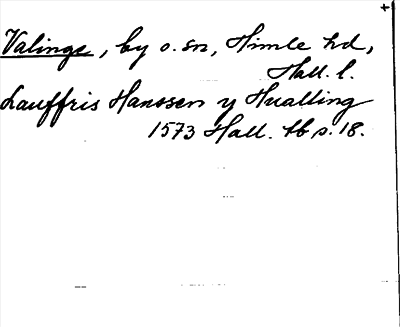 Valinge, by o. sn, Himle hd,
Hall. l.
Lauffris Hanssen y Hualling
1573 Hall. tb s. 18.